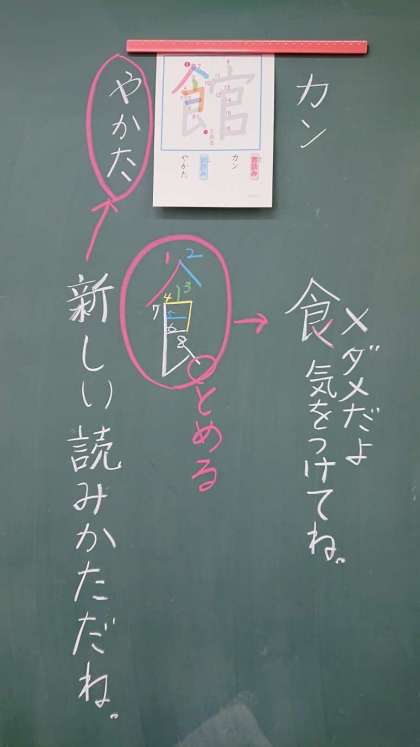 カン
館
音読み
カン
訓読み
やかた
やかた
食
×ダメだよ
気をつけてね。
1
2
3
4
5
6
7
8
とめる
新しい読みかただね。